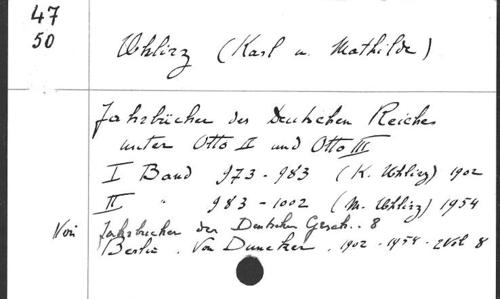 47
50
Uhlirz (Karl u. Mathilde)
Jahrbücher des Deutschen Reiches
unter Otto II und Otto III
I Band 973-983 (K. Uhlirz) 1902
II " 983-1002 (M. Uhlirz) 1954
Voir Jahrbucher der Deutschen Gesch.. 8
Berlin. Von Duncker. 1902-1954-2 Vol 8